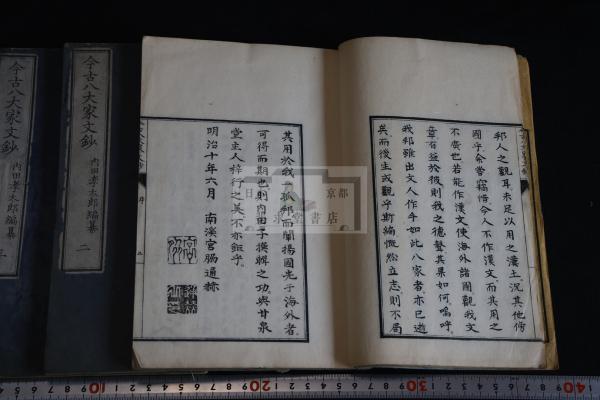 邦人之觀耳未足以用之漢土況其他傍
國乎余嘗竊惜今人不作漢文而其用之
不廣也若能作漢文使海外諸國觀我文
章有益於彼則我之德聲其果如何嗚呼
我邦雖出文人作手如此八家者亦已逝
矣而後生或觀乎斯編慨然立志則不局
其用於我
孤邦而闡揚國光于海外者
可得而期也則内田子撰輯之功與甘泉
堂主人梓行之美不亦鉅乎
明治十年六月 南溪宮脇通赫
今古八大家文鈔
内田孝太郎編纂
二
今古八大家文鈔
内田孝太郎編纂
三
京都
書店
10
20
30
40